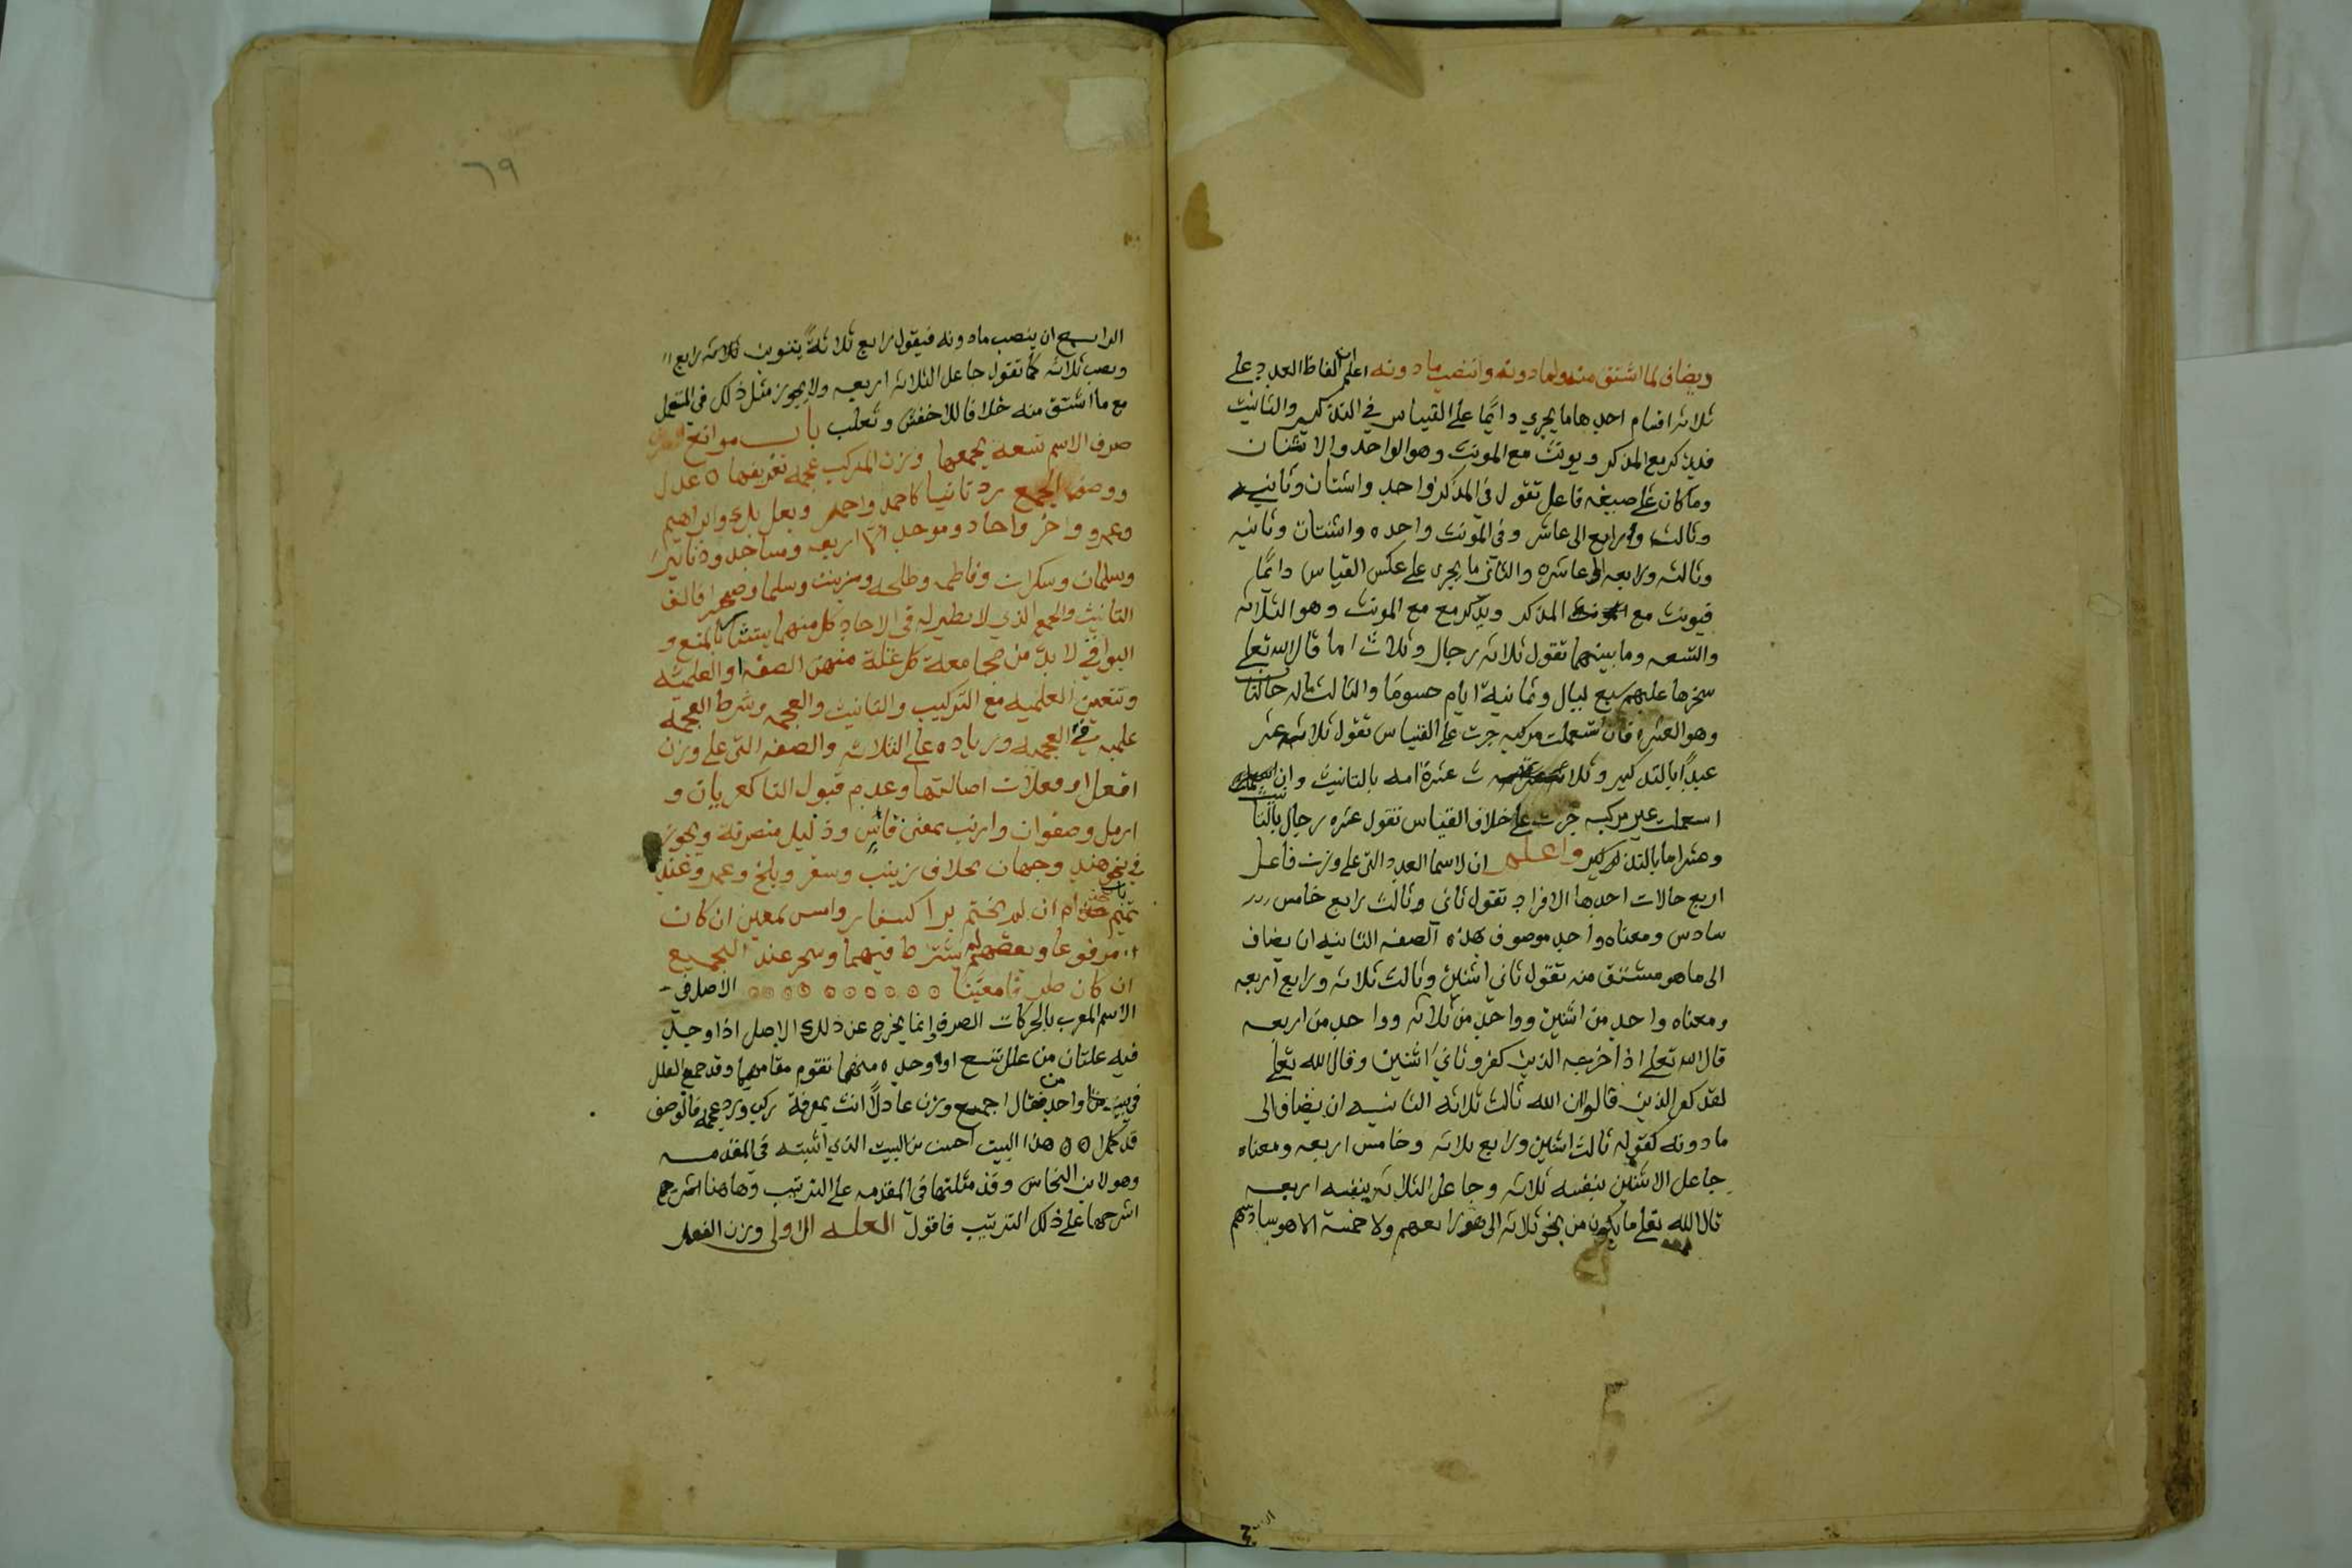 ويضاف لما اشتق منه ولما دونه وانتصب مادونه اعلم ان الفاظ العدد على
ثلاثه اقسام احدها ما يجري دايما على القياس في التذكير والتانيث
فيذكر مع المذكر ويونث مع المونث وهو الواحد والاثنان
وما كان على صيغه فاعل تقول في المذكر واحد واثنان وثاني
وثالث ورابع الى عاشر وفي المونث واحده واثنتان وثانيه
وثالثه ورابعه الى عاشره والثاني ما يجرى على عكس القياس دايما
فيونث مع المذكر ويذكر مع المونث وهو الثلاثه
والتسعه وما بينهما تقول ثلاثه رجال وثلاث اما قال الله تعلى
سخرها عليهم سبع ليال وثمانية ايام حسوما والثالث ماله حالتان
وهو العشره فان استعملت مركبه جرت على القياس تقول ثلاثه عشر
عبدًا بالتذكير وثلاث عشرة امه بالتانيث وان
استعملت غير مركبه جرت على خلاف القياس تقول عشره رجال بالتانيث
وعشر اما بالتذكير واعلم ان لاسما العدد التي على وزن فاعل
اربع حالات احدها الافراد تقول ثاني وثالث رابع خامس
سادس ومعناه واحد موصوف بهذه الصفه الثانيه ان يضاف
الى ما هو مشتق منه تقول ثاني اثنين وثالث ثلاثه ورابع اربعه
ومعناه واحد من اثنين وواحد من ثلاثه وواحد من اربعه
قال الله تعلى اذ اخرجه الذين كفرو ثاني اثنين وقال الله تعلى
لقد كفر الذين قالوا ان الله ثالث ثلاثه الثانيه ان يضاف الى
ما دونه كقوله ثالث اثنين ورابع ثلاثه وخامس اربعه ومعناه
جاعل الاثنين بنفسه ثلاثه وجاعل الثلاثه بنفسه اربعه
قال الله تعلى ما يكون من نجوى ثلاثه الا هو رابعهم ولا خمسة الا هو سادسهم
٦٩
الرابع ان ينصب ما دونه فيقول رابع ثلاثةً بتنوين رابع
ونصب ثلاثه كما تقول جاعل الثلاثه اربعه ولا يجوز مثل ذلك في المستعمل
مع ما اشتق منه خلافا للاخفش وثعلب باب موانع
صرف الاسم تسعه يجمعها وزن المركب عجمه تعريفها ٥ عدل
ووصف الجمع زد تانيثا كاحمد واحمر وبعلبك وابراهيم
وعمرو واخر واحاد وموحد الى اربعه ومساجد ودنانير
وسلمان وسكران وفاطمه وطلحه وزينب وسلما وصحرا فالف
التانيث والجمع الذي لا نظير له في الاحاد كل منهما يستاثر بالمنع و
البواقي لا بد من مجامعة كل علة منهن الصفه او العلميه
وتتعين العلميه مع التركيب والتانيث والعجمه وشرط العجمه
علميه في العجميه وزياده على الثلاثه والصفه التي على وزن
افعل او فعلان اصالتها وعدم قبول التا كعريان و
ارمل وصفوان وارنب بمعنى قاس وذليل منصرفة ويجوز
في نحو هند وجهان بخلاف زينب وسقر وبلخ وعمر وعند
تميم باب حذام ان لم يختم برا كسفار وامس لمعين ان كان
مرفوعا وبعضهم لم يشترط فيهما وسحر عند الجميع
ان كان ظرفا معينا الاصل في
الاسم المعرب بالحركات الصرف وانما يخرج عن ذلك الاصل اذا وجد
فيه علتان من علل تسع او واحده منها تقوم مقامهما وقد جمع العلل
في بيت واحد من قال اجمع وزن عادلًا انث بمعرفة ركب وزد عجمه فالوصف
قد كمل ٥٥ هذا البيت احسن من البيت الذي اثبته في المقدمه
وهو لابن النحاس وقد مثلتها في المقدمه على الترتيب وها هنا
اشرحها على ذلك الترتيب فاقول العله الاولى وزن الفعل